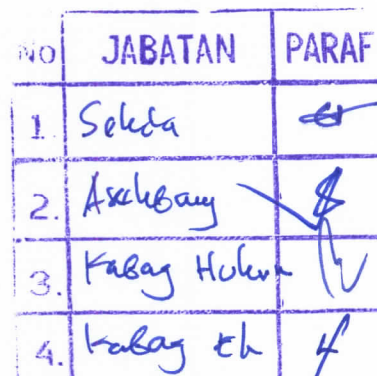 NO JABATAN PARAF
1. Sekda
2. Asekbang
3. Kabag Hukum
4. Kabag Ek